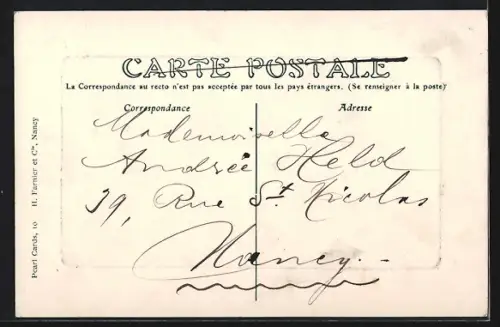 CARTE POSTALE
La Correspondance au recto n'est pas acceptée par tous les pays étrangers. (Se renseigner à la poste)
Correspondance
Adresse
Mademoiselle
Andrée Held
39, Rue St. Nicolas
Nancy.-
Pearl Cards, 10 H. Farnier et Cie, Nancy